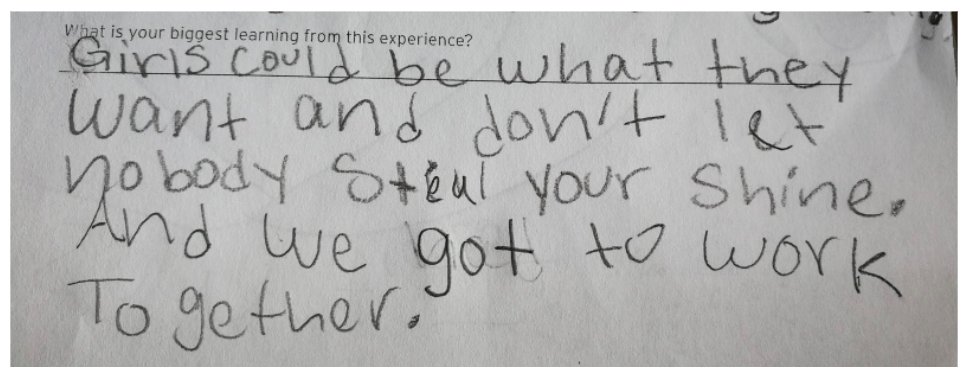 What is your biggest learning from this experience?
Girls could be what they
want and don't let
nobody Steal your Shine.
And we got to work
Together.